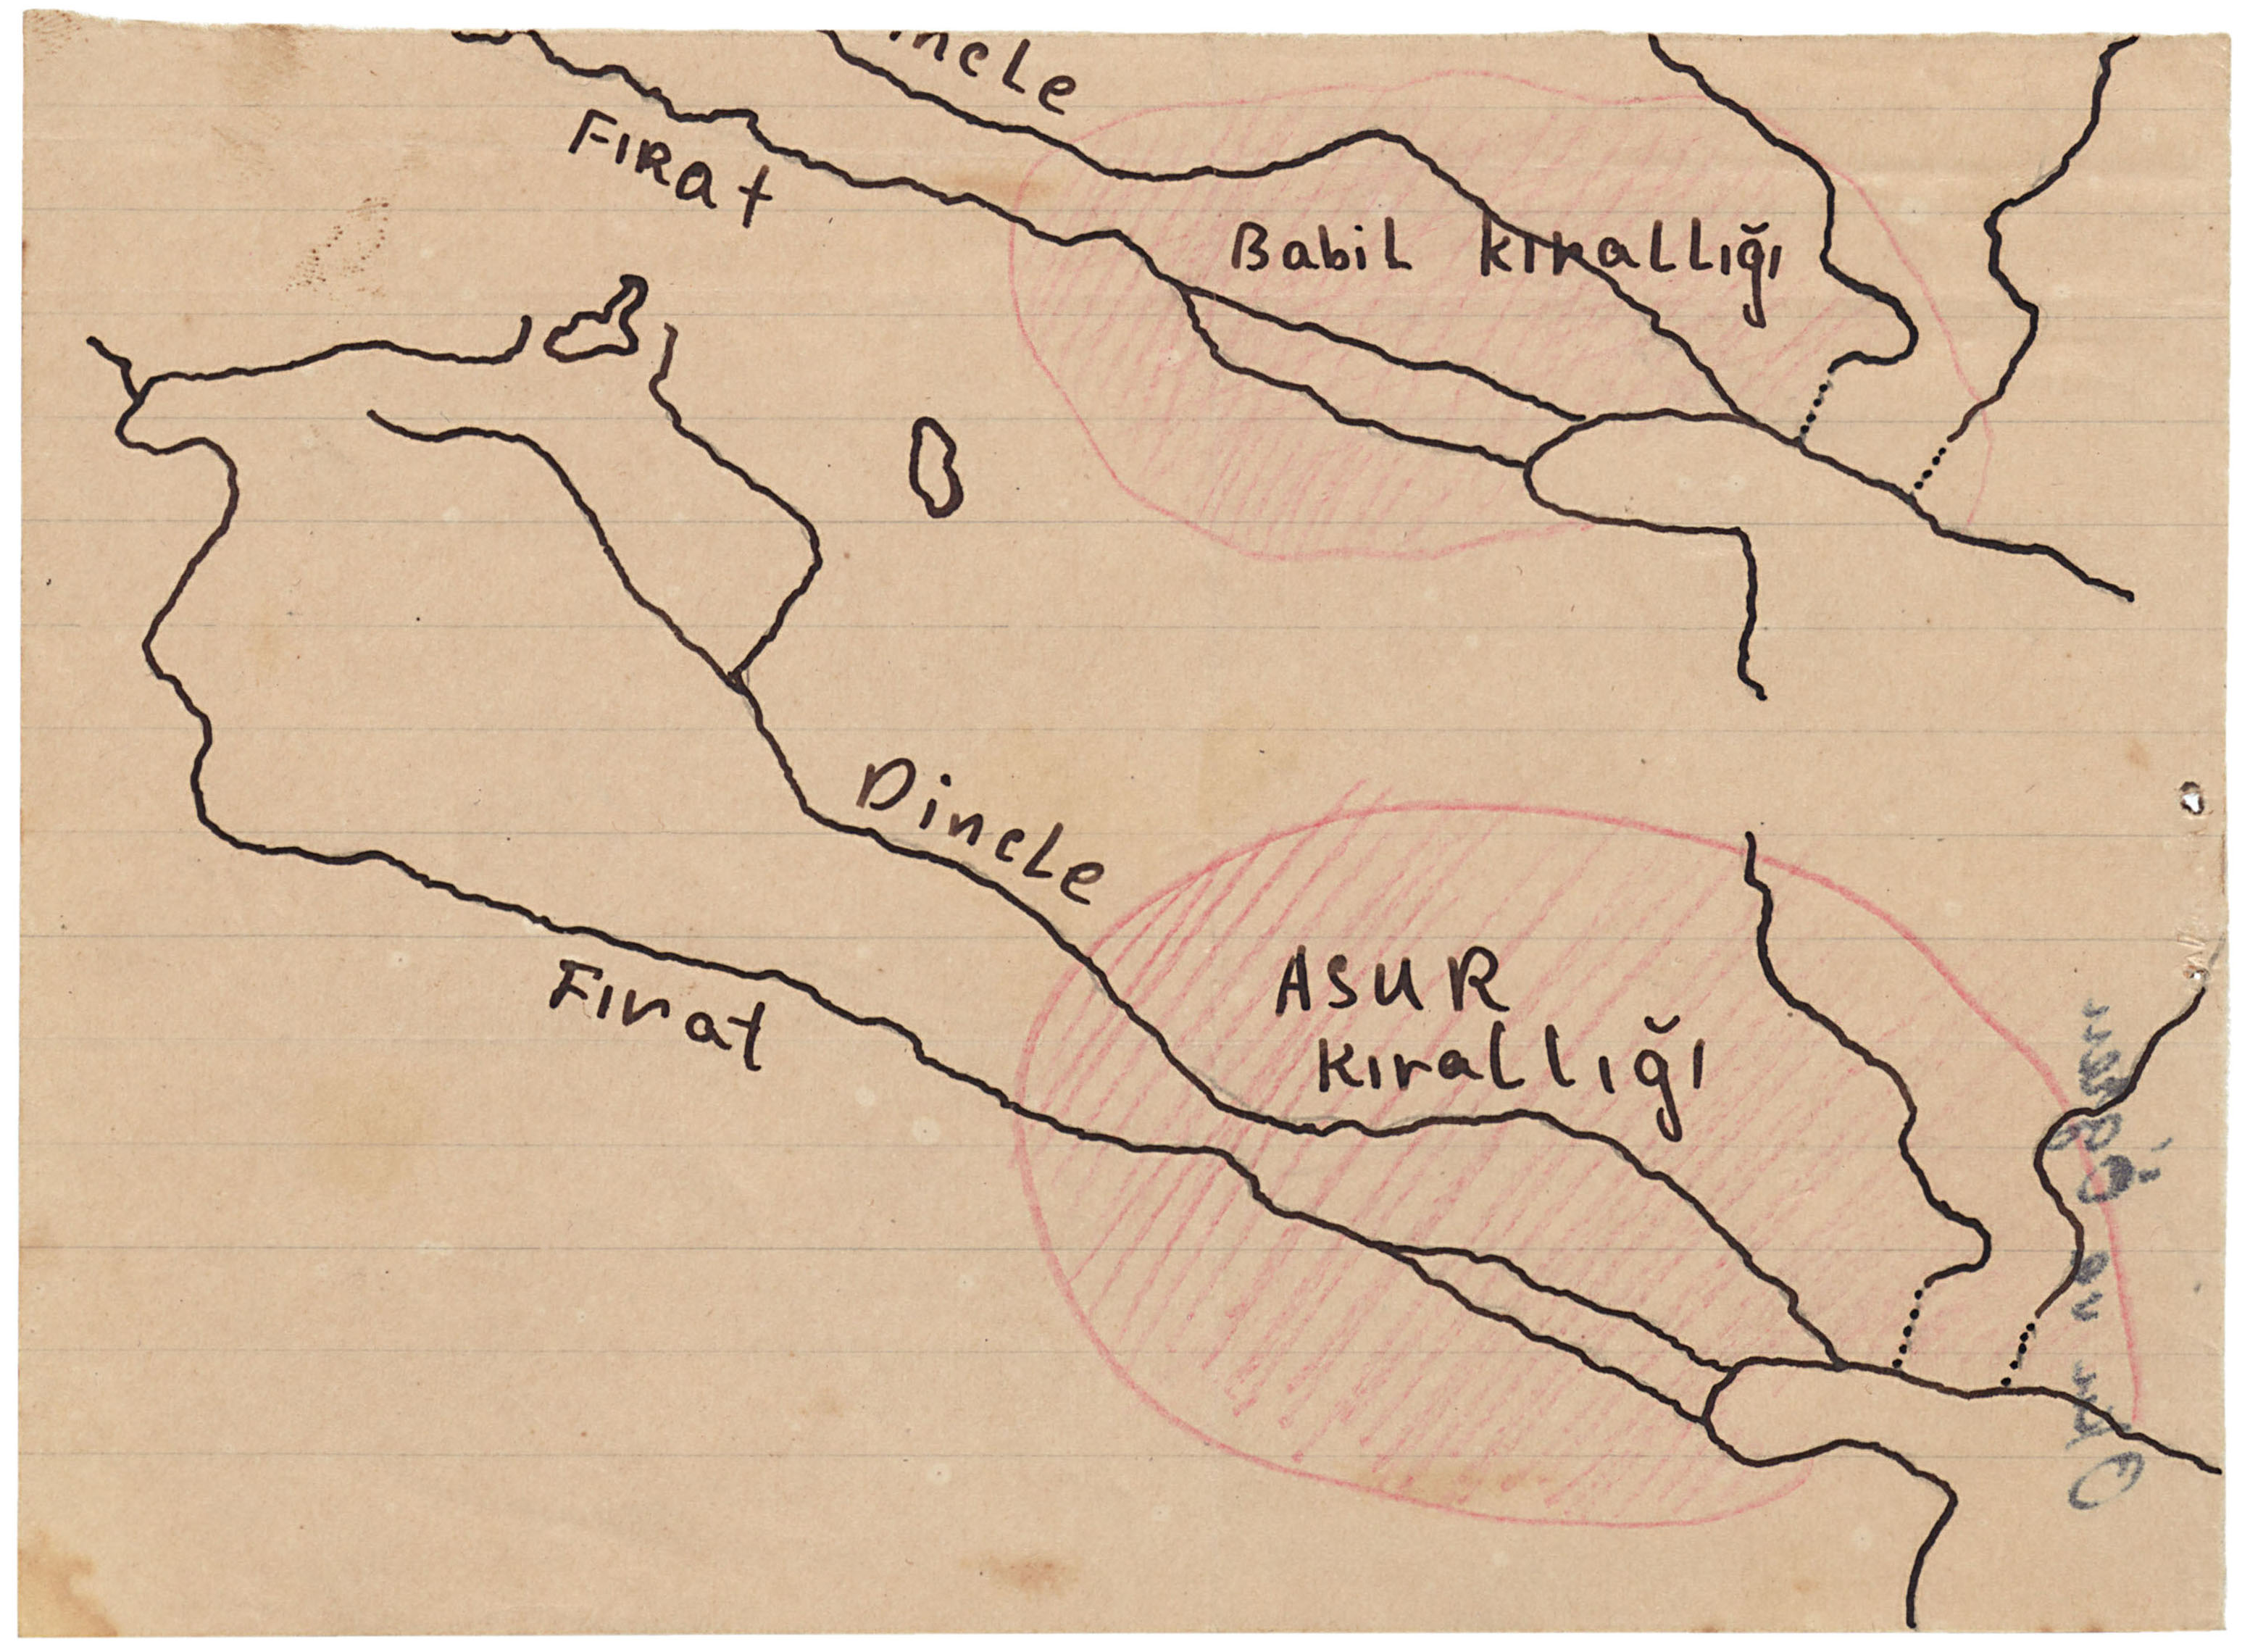 ncle
FIRat
Babil kırallığı
Dincle
Fırat
ASUR
kırallığı